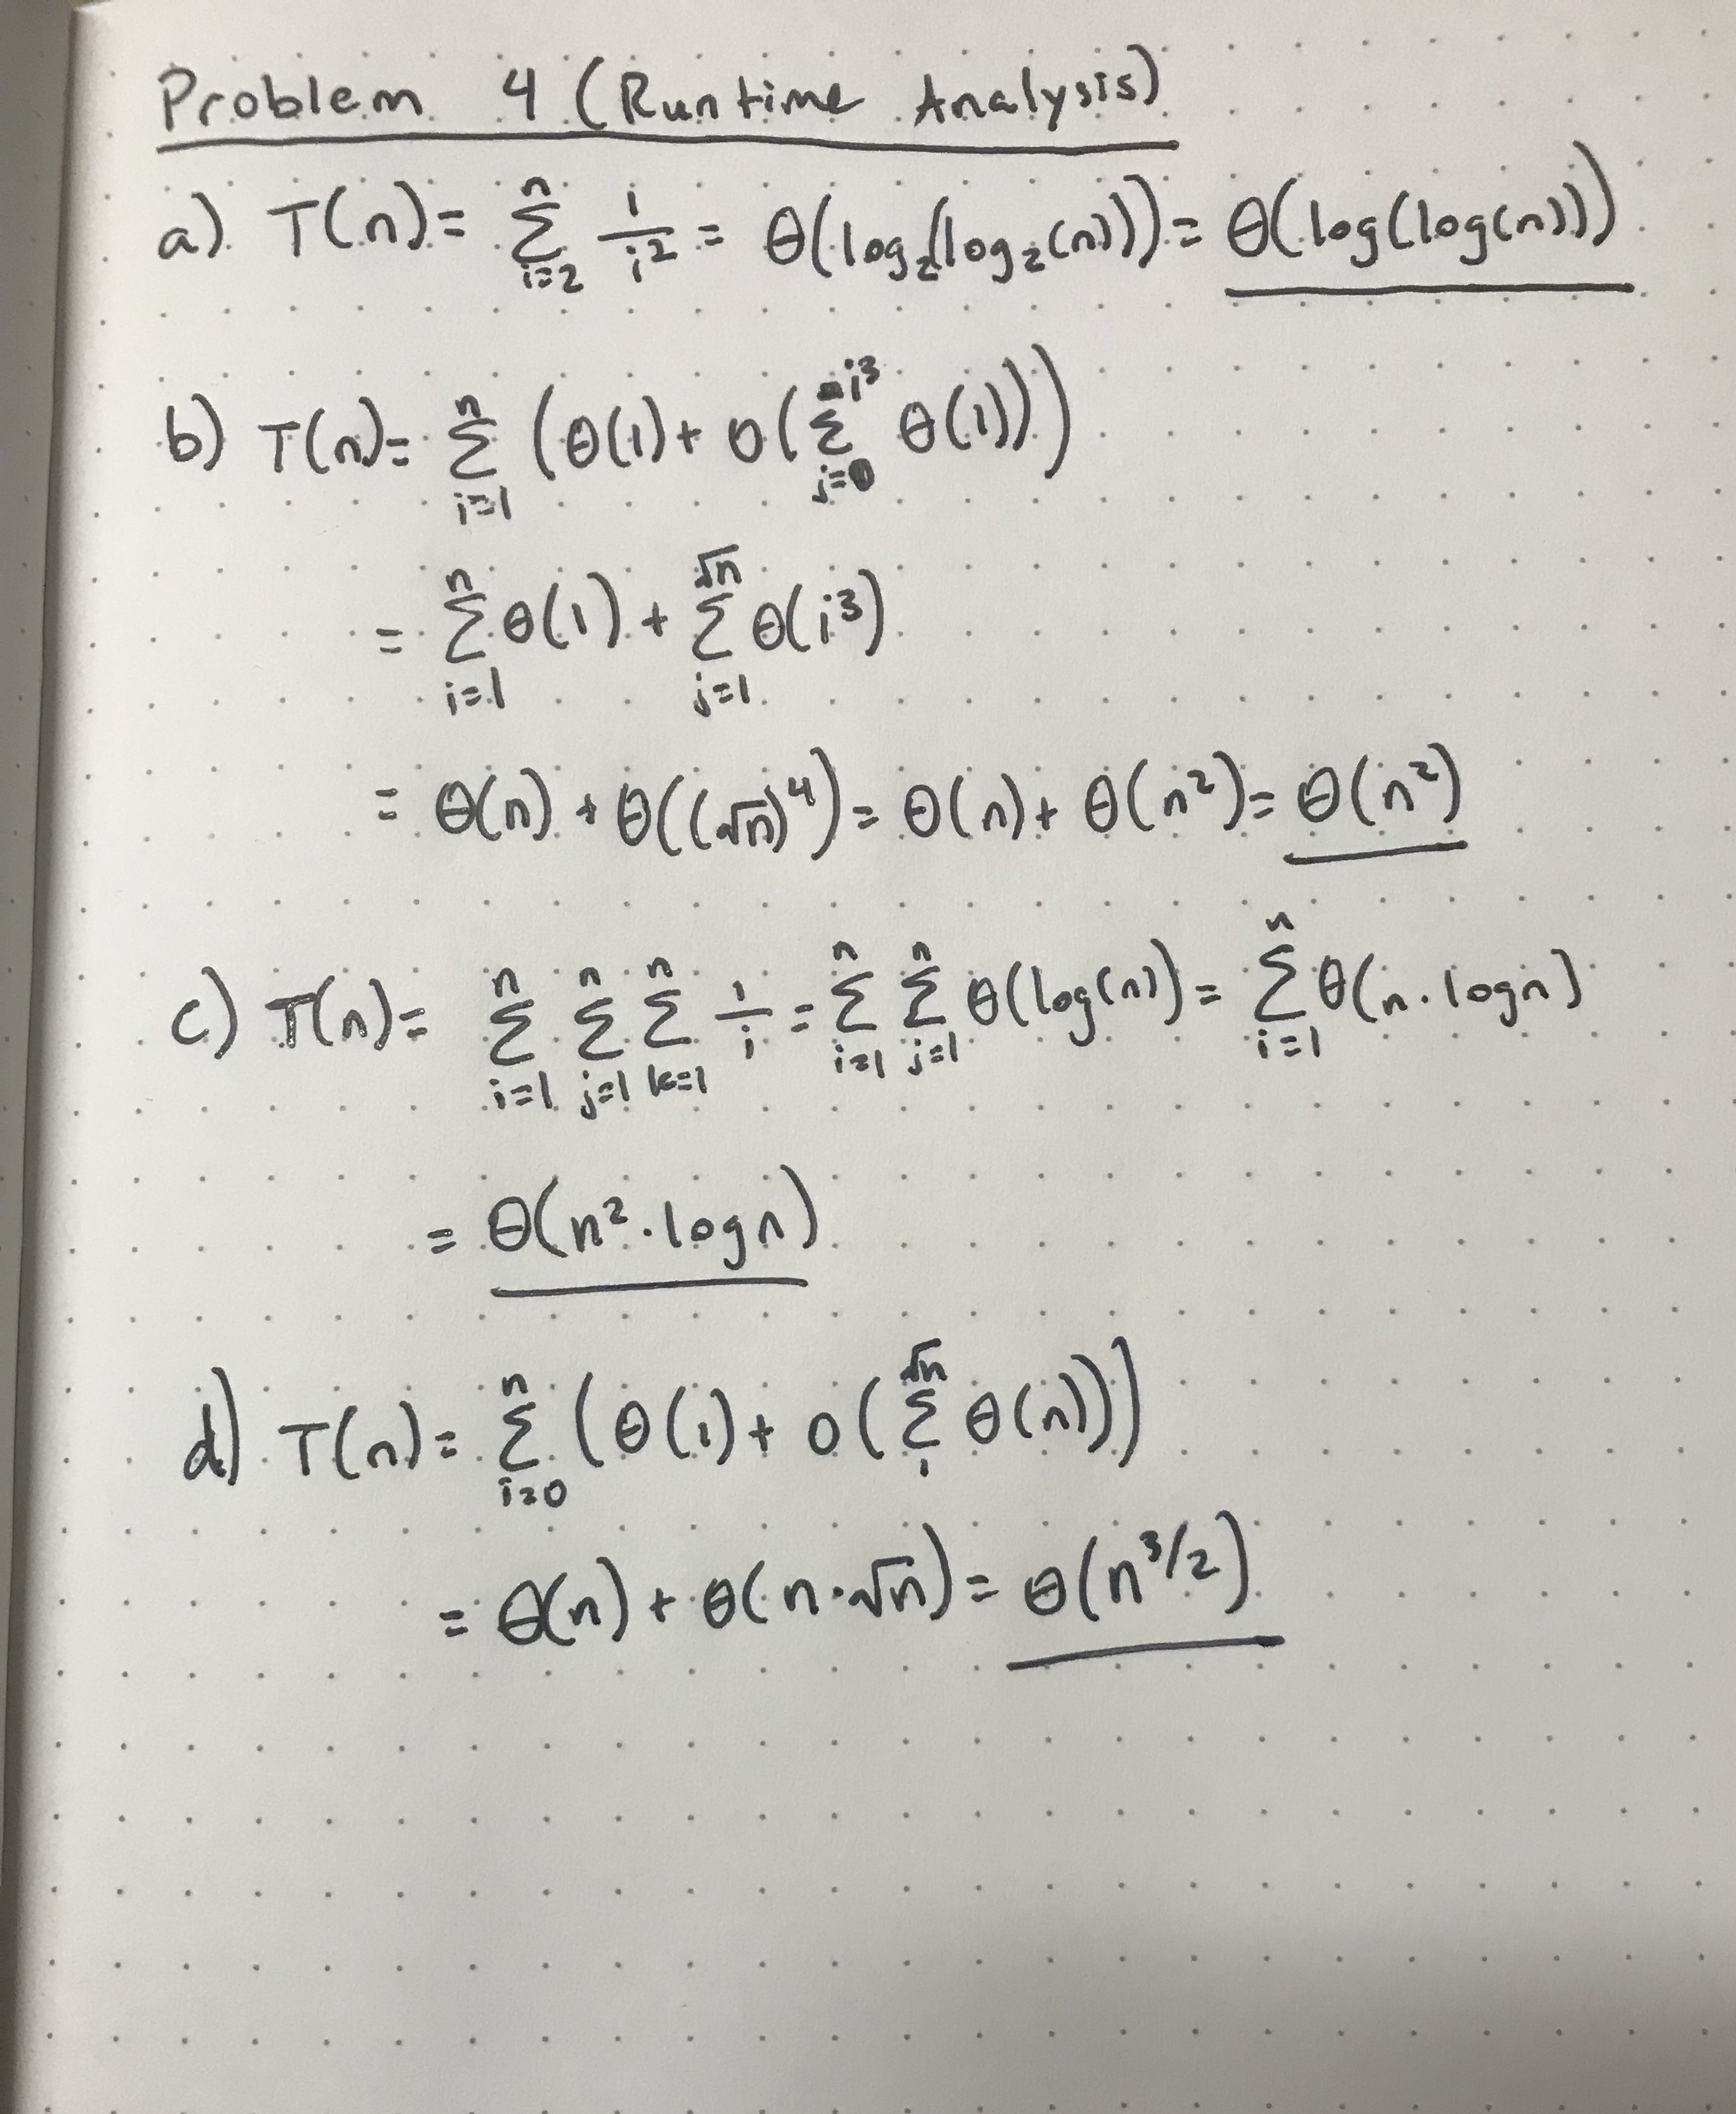 Problem 4 (Runtime Analysis)
a) T(n) = ∑_{i=2}^{n} 1/i² = θ(log₂(log₂(n))) = θ(log(log(n)))
b) T(n) = ∑_{i=1}^{n} (θ(1) + O(∑_{j=0}^{i³} θ(1)))
= ∑_{i=1}^{n} θ(1) + ∑_{j=1}^{√n} θ(i³)
= θ(n) + θ((√n)⁴) = θ(n) + θ(n²) = θ(n²)
c) T(n) = ∑_{i=1}^{n} ∑_{j=1}^{n} ∑_{k=1}^{n} 1/i = ∑_{i=1}^{n} ∑_{j=1}^{n} θ(log(n)) = ∑_{i=1}^{n} θ(n·logn)
= θ(n²·logn)
d) T(n) = ∑_{i=0}^{n} (θ(1) + O(∑_{i}^{√n} θ(n)))
= θ(n) + θ(n·√n) = θ(n^{3/2})